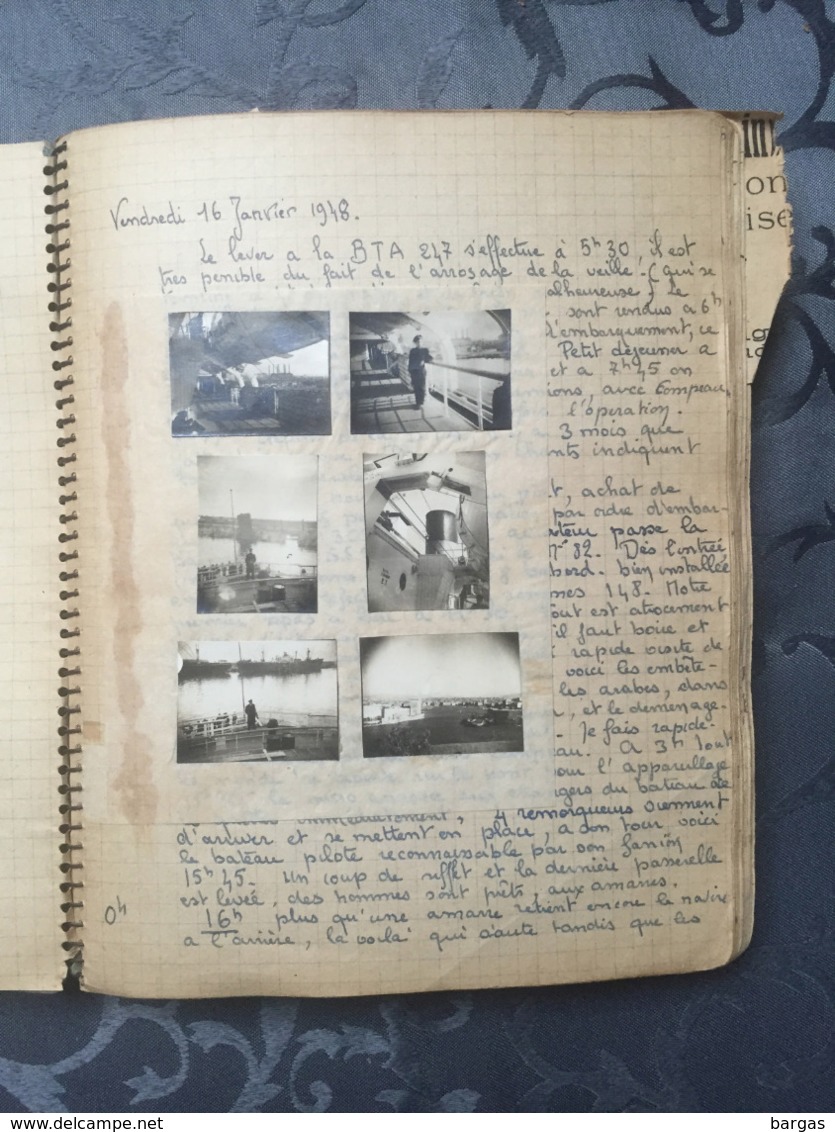 Vendredi 16 Janvier 1948.
Le lever a la BTA 247 s'effectue à 5h30, il est
tres penible du fait de l'arrosage de la veille. (qui se
alheureuse) Le
sont rendus a 6h
l'embarquement, ce
Petit déjeuner a
et a 7h45 on
ions, avec Compeau,
l'opération.
3 mois que
nts indiquent
t, achat de
par ordre d'embar-
ateau passe la
n° 82. Dès l'entrée
bord. bien installée
nes 148. Notre
out est atrocement
il faut boire et
rapide visite de
voici les embête-
les arabes, dans
, et le déménage-
- Je fais rapide-
eau. A 3h tout
our l'appareillage
gers du bateau de
immédiatement, 4 remorqueurs viennent
d'arriver et se mettent en place, a son tour voici
le bateau pilote reconnaissable par son fanion
15h45. Un coup de sifflet et la dernière passerelle
est levée, des hommes sont prêts, aux amarres.
16h plus qu'une amarre retient encore le navire
a l'arrière, la voilà qui saute tandis que les
04
in
on
ise